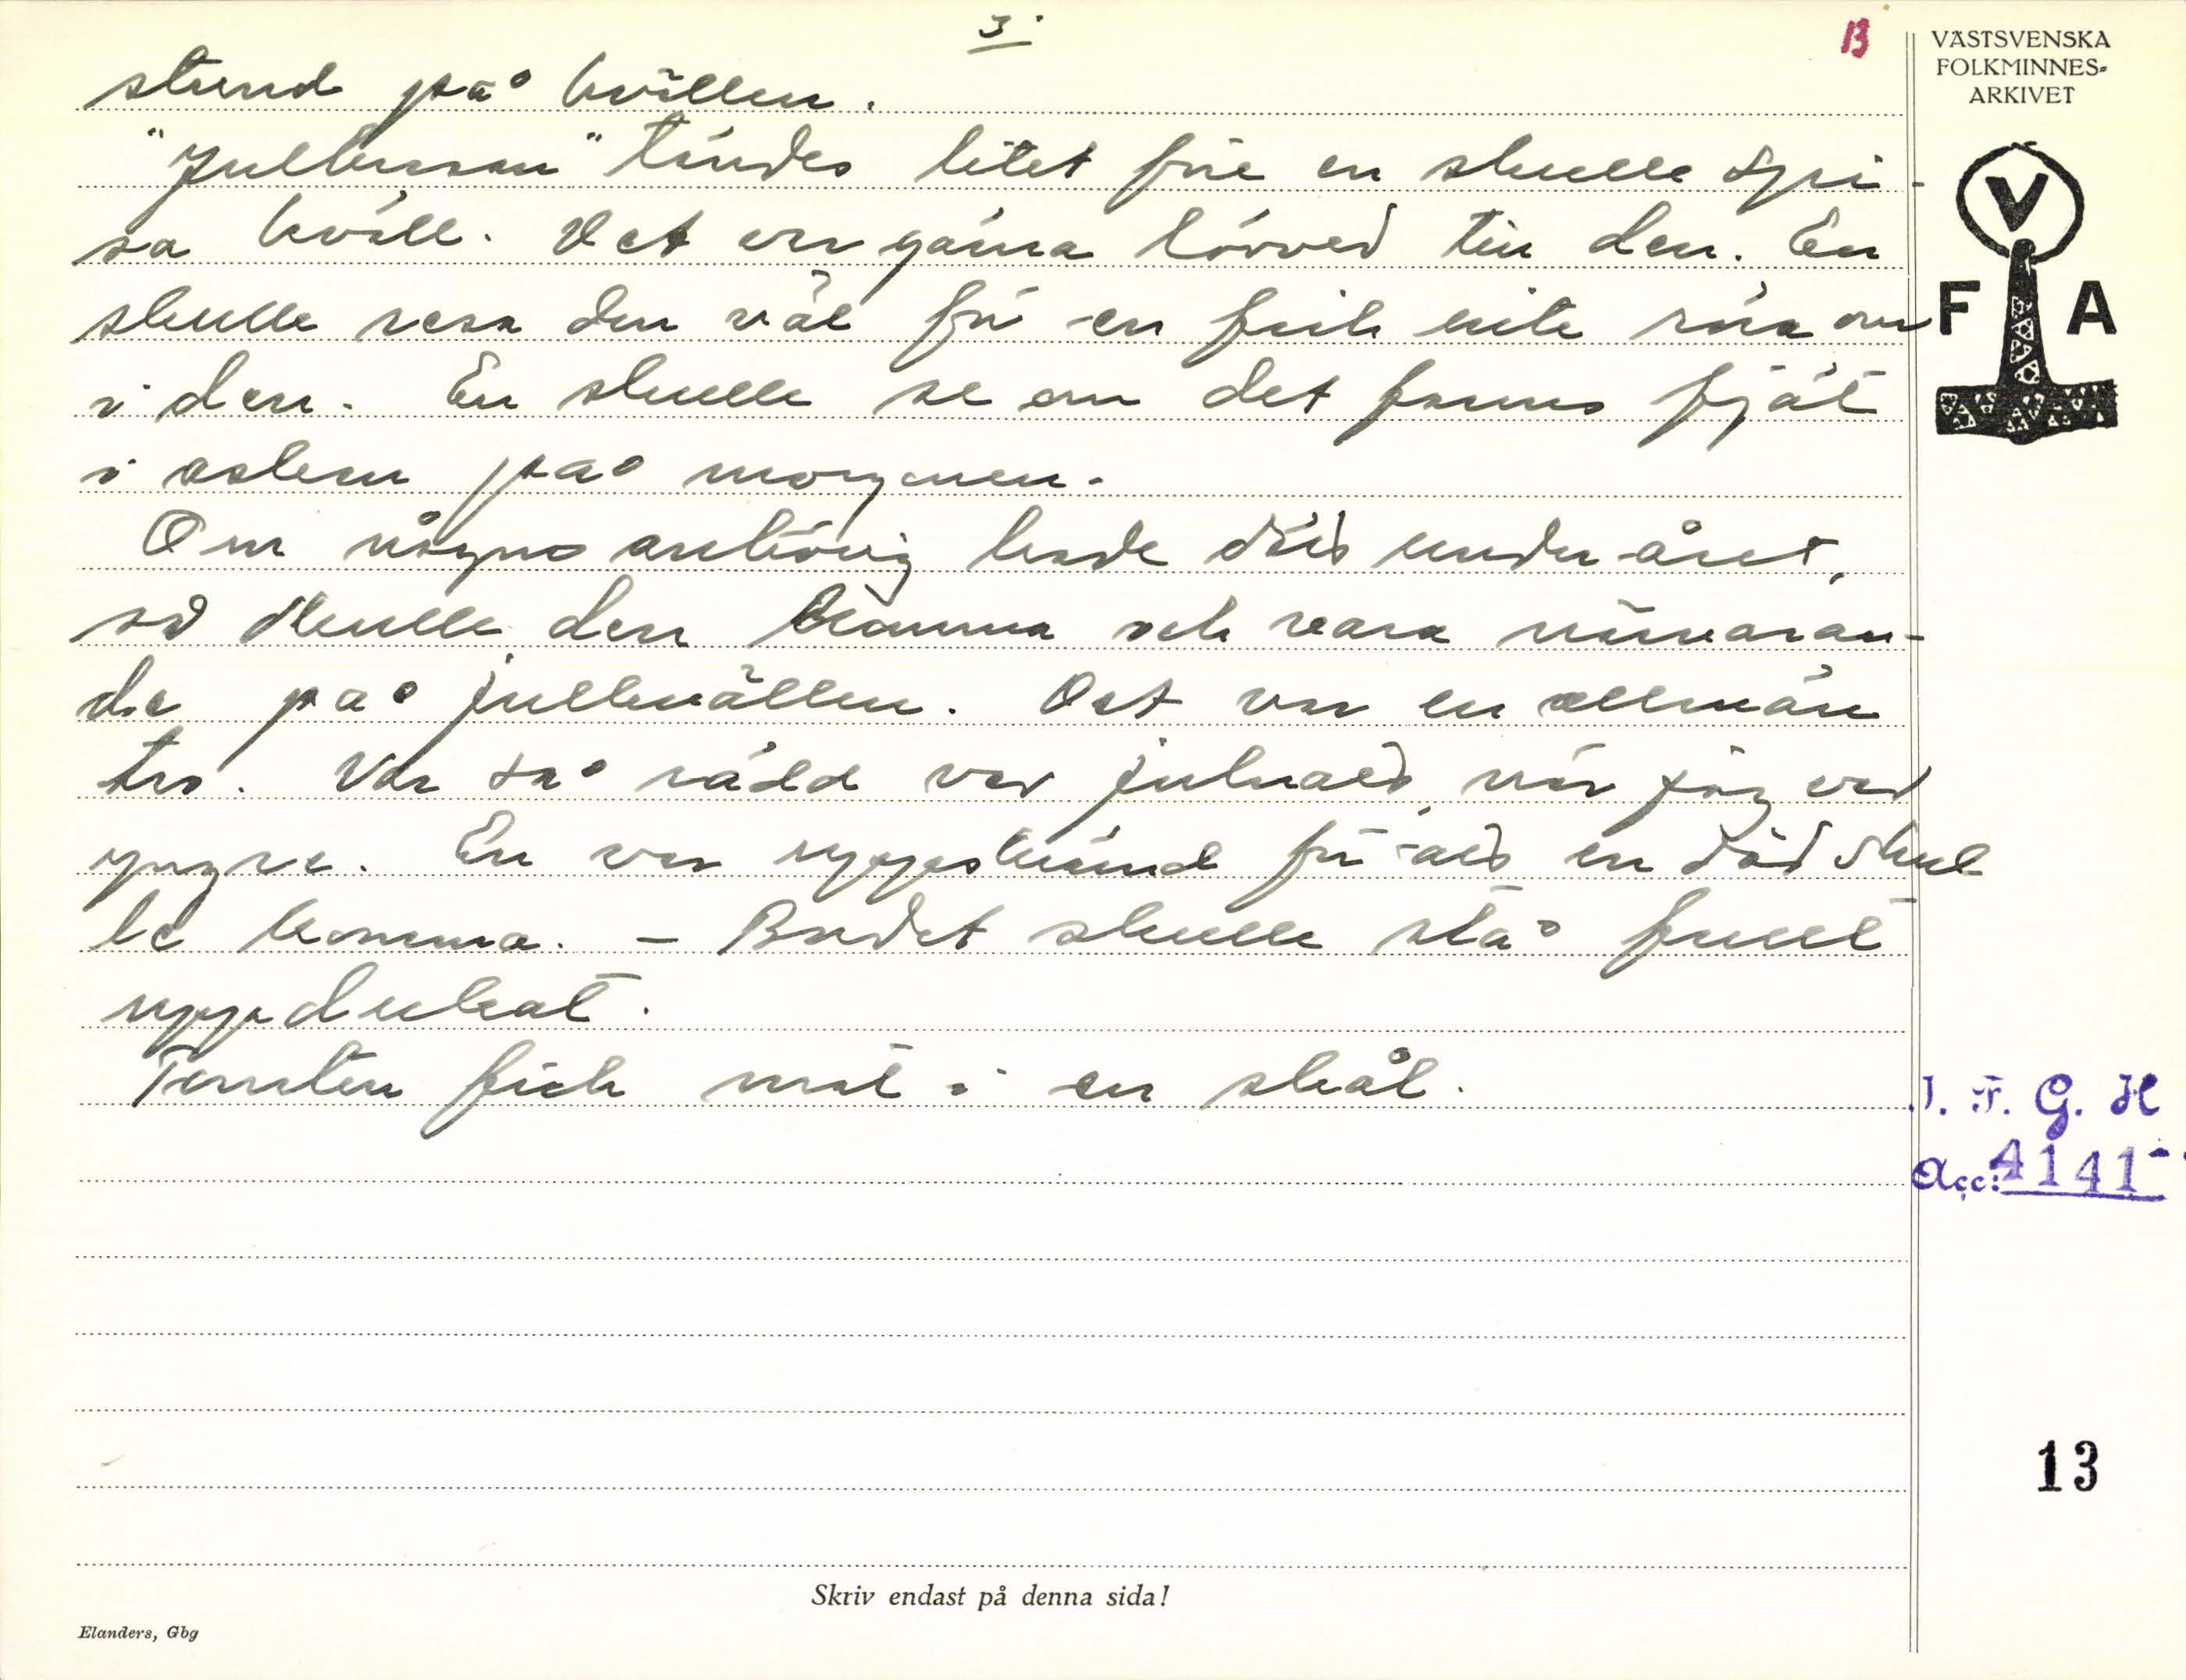 3.
13
VÄSTSVENSKA
FOLKMINNES-
ARKIVET
V
F A
stund på kvällen.
"Julbrasan" tändes litet före en skulle spi-
sa kväll. Det var gärna lövved till den. En
skulle resa den väl för en fick inte röra om
i den. En skulle se om det fanns fjät
i askan på morgonen.
Om någon anhörig hade dött under året,
så skulle den komma och vara närvaran-
de på julkvällen. Det var en allmän
tro. Var så rädd var julnatt, när jag var
yngre. En var uppskrämd för att en död skul-
le komma. - Bordet skulle stå fullt
uppdukat.
Tomten fick mat i en skål.
I. F. G. H
Acc: 4141
13
Skriv endast på denna sida!
Elanders, Gbg